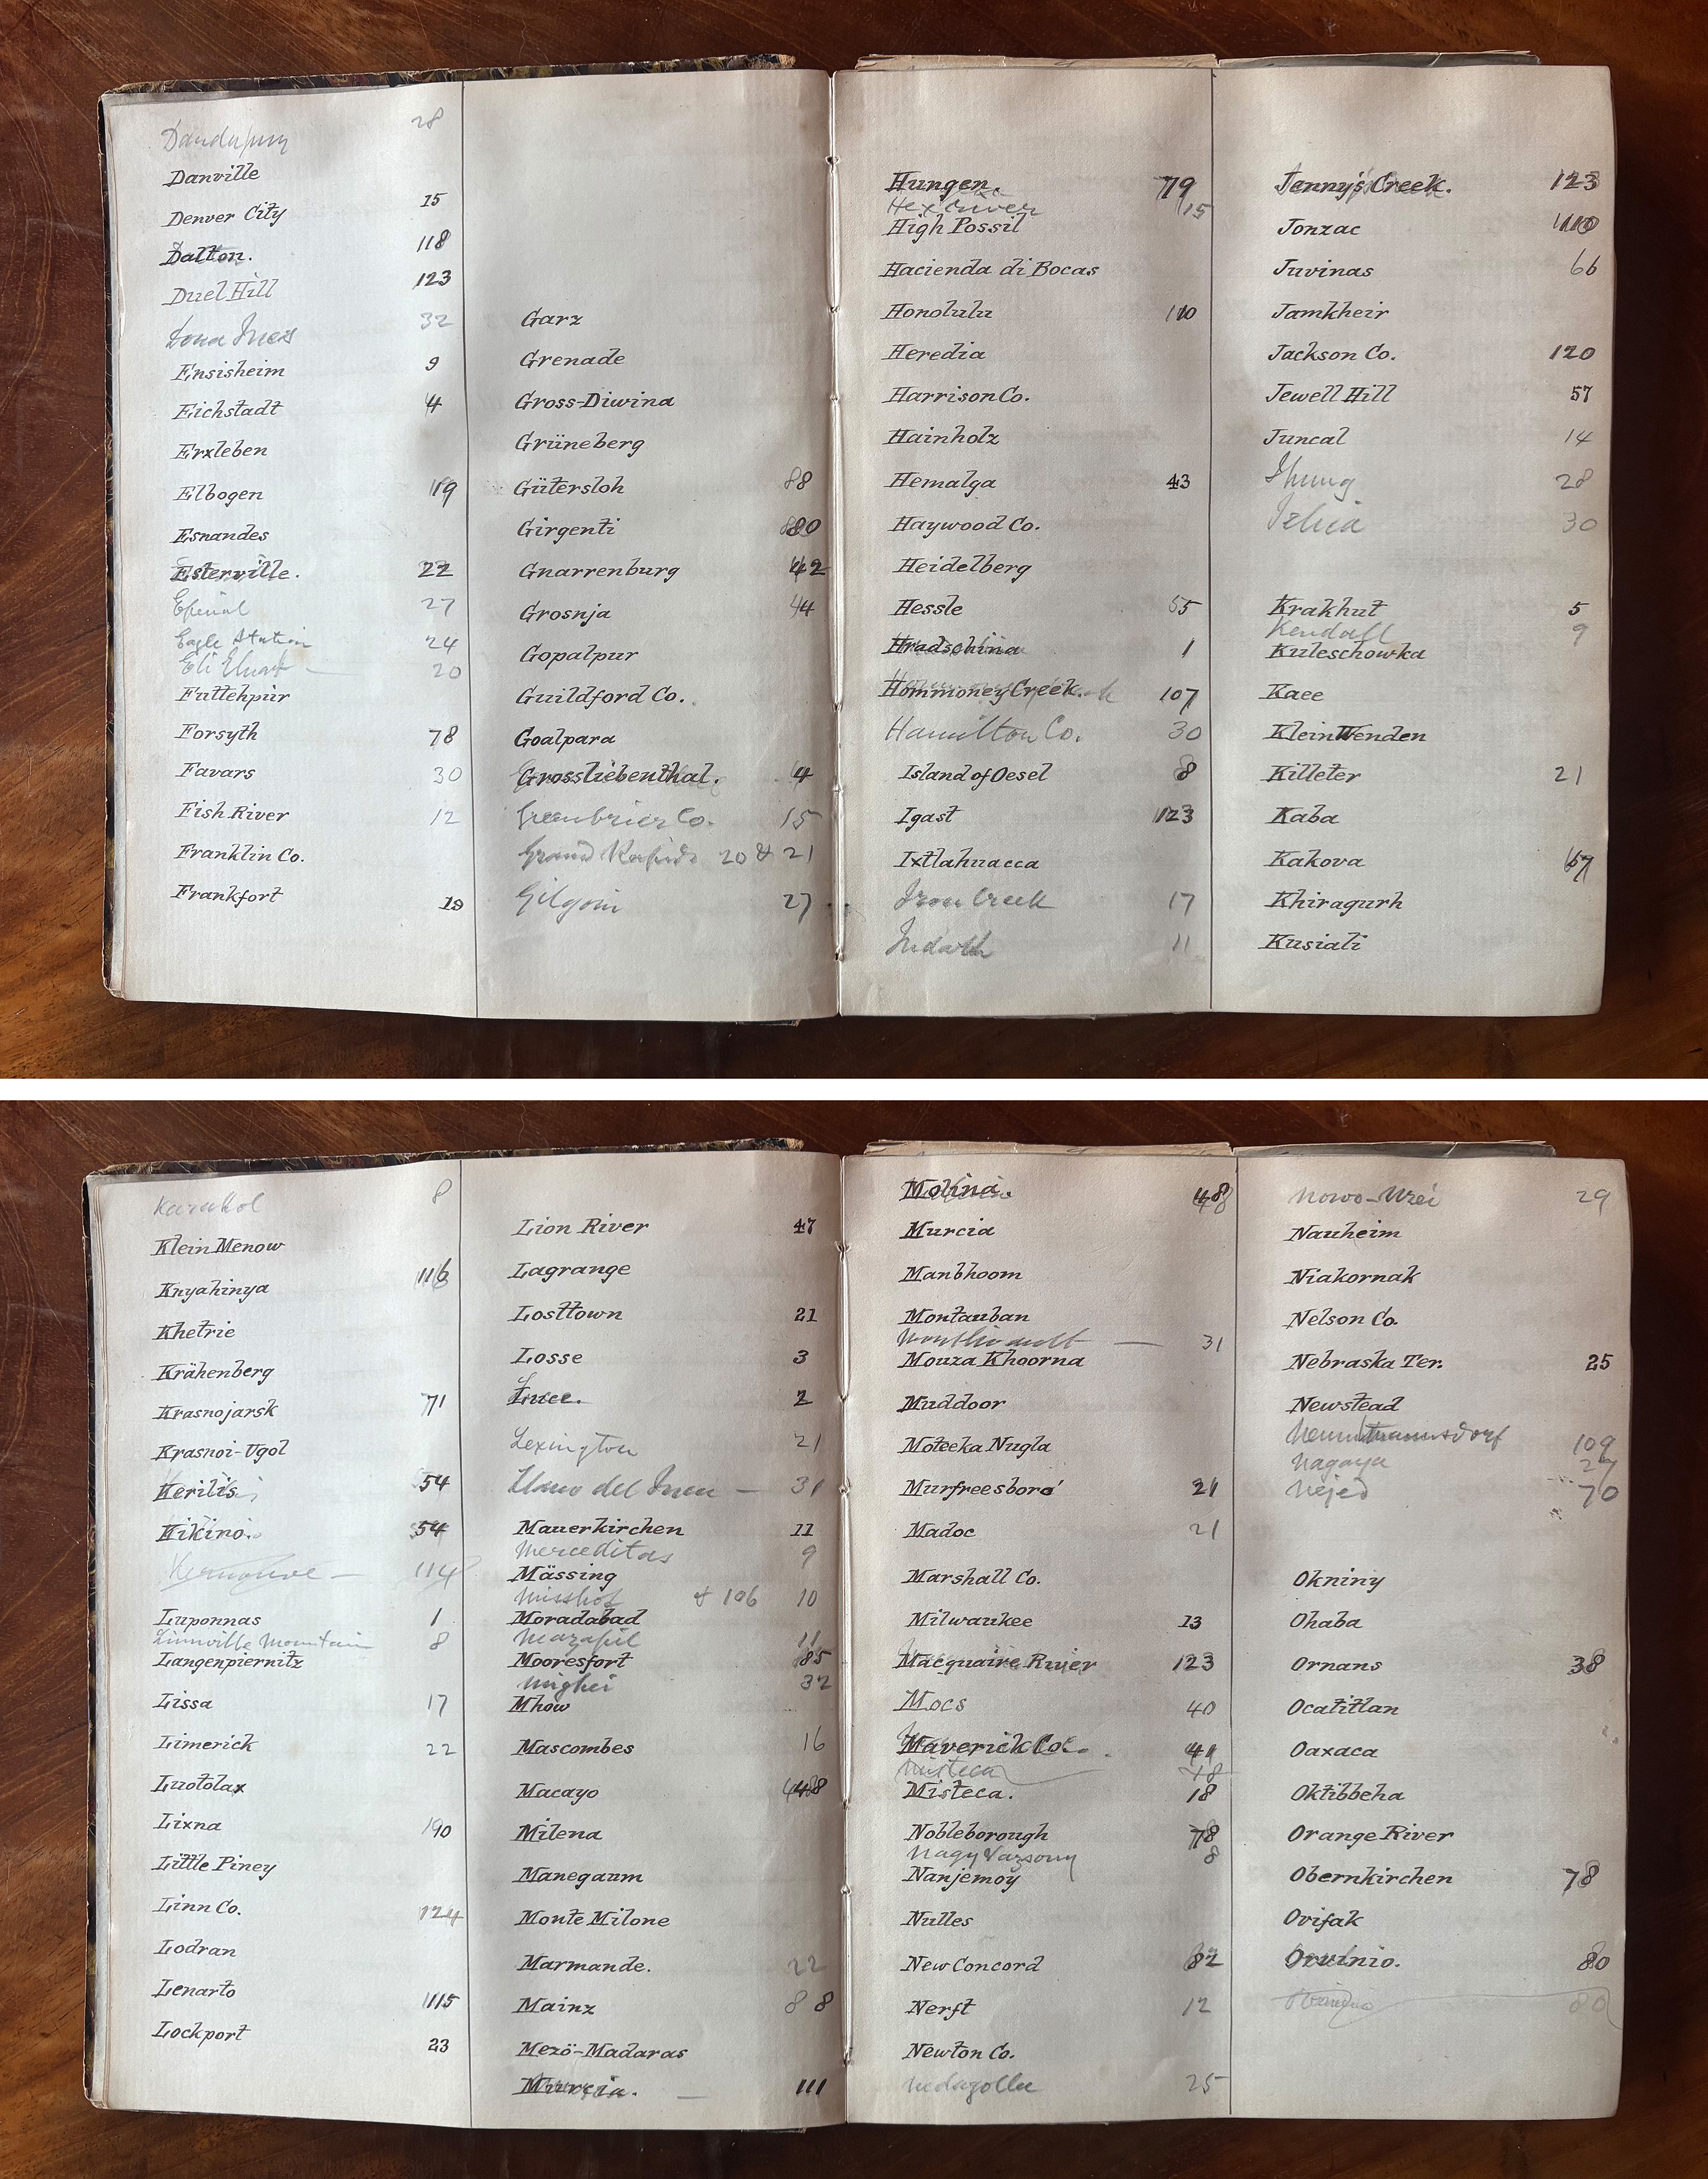 Dandapur 28
Danville
Denver City 15
Dalton. 118
Duel Hill 123
Dona Inez 32
Ensisheim 9
Eichstadt 4
Erxleben
Elbogen 119
Esnandes
Esterville. 22
Epinal 27
Eagle Station 24
Eli Elwah 20
Futtehpur
Forsyth 78
Favars 30
Fish River 12
Franklin Co.
Frankfort
Garz
Grenade
Gross-Diwina
Grüneberg
Gütersloh 88
Girgenti 80
Gnarrenburg 42
Grosnja 44
Gopalpur
Guildford Co.
Goalpara
Grossliebenthal. 4
Greenbrier Co. 15
Grand Rapids 20 & 21
Gilgoin 27
Hungen. 79
Hex River 15
High Possil
Hacienda di Bocas
Honolulu 110
Heredia
Harrison Co.
Hainholz
Hemalga 43
Haywood Co.
Heidelberg
Hessle 55
Hradschina 1
Hommoney Creek. 107
Hamilton Co. 30
Island of Oesel 8
Igast 123
Ixtlahuacca
Iron Creek 17
Indarkh 11
Jenny's Creek. 123
Jonzac 110
Juvinas 66
Jamkheir
Jackson Co. 120
Jewell Hill 57
Juncal 14
Jhung 28
Jelica 30
Krakhut 5
Kendall 9
Kuleschowka
Kaee
Klein Wenden
Killeter 21
Kaba
Kakova 67
Khiragurh
Kusiali
Karakol 8
Klein Menow
Knyahinya 116
Khetrie
Krähenberg
Krasnojarsk 71
Krasnoi-Ugol
Kerilis 54
Kikino. 54
Kernouve 114
Luponnas 1
Linnville Mountain 8
Langenpiernitz
Lissa 17
Limerick 22
Luotolax
Lixna 190
Little Piney
Linn Co. 124
Lodran
Lenarto 115
Lockport 23
Lion River 47
Lagrange
Losttown 21
Losse 3
Lucé. 2
Lexington 21
Llano del Inca 31
Mauerkirchen 11
Merceditas 9
Mässing
Misshof & 106 10
Moradabad
Mazapil 11
Mooresfort 85
Mighei 32
Mhow
Mascombes 16
Macayo 48
Milena
Manegaum
Monte Milone
Marmande. 22
Mainz 88
Mezö-Madaras
Murcia. 111
Molina. 48
Murcia
Manbhoom
Montauban
Monthivault 31
Mouza Khoorna
Muddoor
Moteeka Nugla
Murfreesboro' 21
Madoc 21
Marshall Co.
Milwaukee 13
Macquaire River 123
Mocs 40
Maverick Co. 41
Misteca 18
Misteca. 18
Nobleborough 78
Nagy Vazsony 8
Nanjemoy
Nulles
New Concord 82
Nerft 12
Newton Co.
Nedagolla 25
Nowo-Urei 29
Nauheim
Niakornak
Nelson Co.
Nebraska Ter. 25
Newstead
109
Nagaya 27
Nejed 70
Okniny
Ohaba
Ornans 38
Ocatitlan
Oaxaca
Oktibbeha
Orange River
Obernkirchen 78
Ovifak
Orvinio. 80
80